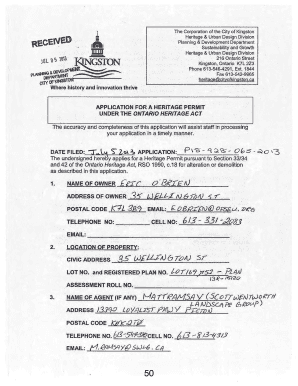 The Corporation of the City of Kingston
Heritage & Urban Design Division
Planning & Development Department
Sustainability and Growth
Heritage & Urban Design Division
216 Ontario Street
Kingston, Ontario K7L 2Z3
Phone 613-546-4291, Ext. 1844
Fax 613-542-9965
heritage@cityofkingston.ca
RECEIVED
JUL 05 2013
PLANNING & DEVELOPMENT
DEPARTMENT
CITY OF KINGSTON
KINGSTON
Where history and innovation thrive
APPLICATION FOR A HERITAGE PERMIT
UNDER THE ONTARIO HERITAGE ACT
The accuracy and completeness of this application will assist staff in processing
your application in a timely manner.
DATE FILED: July 5 2013 APPLICATION: P18-428-065-2013
The undersigned hereby applies for a Heritage Permit pursuant to Section 33/34
and 42 of the Ontario Heritage Act, RSO 1990, c.18 for alteration or demolition
as described in this application.
1. NAME OF OWNER ERIC O'BRIEN
ADDRESS OF OWNER 35 WELLINGTON ST
POSTAL CODE EMAIL:
TELEPHONE NO: CELL NO: 613-331-2083
EMAIL:
2. LOCATION OF PROPERTY:
CIVIC ADDRESS 35 WELLINGTON ST
LOT NO. and REGISTERED PLAN NO. PLAN
ASSESSMENT ROLL NO.
3. NAME OF AGENT (IF ANY) MATT RAMSAY (SCOTT WENTWORTH
LANDSCAPE GROUP)
ADDRESS LOYALIST PKWY PICTON
POSTAL CODE
TELEPHONE NO. CELL NO: 613-813-4313
EMAIL:
50